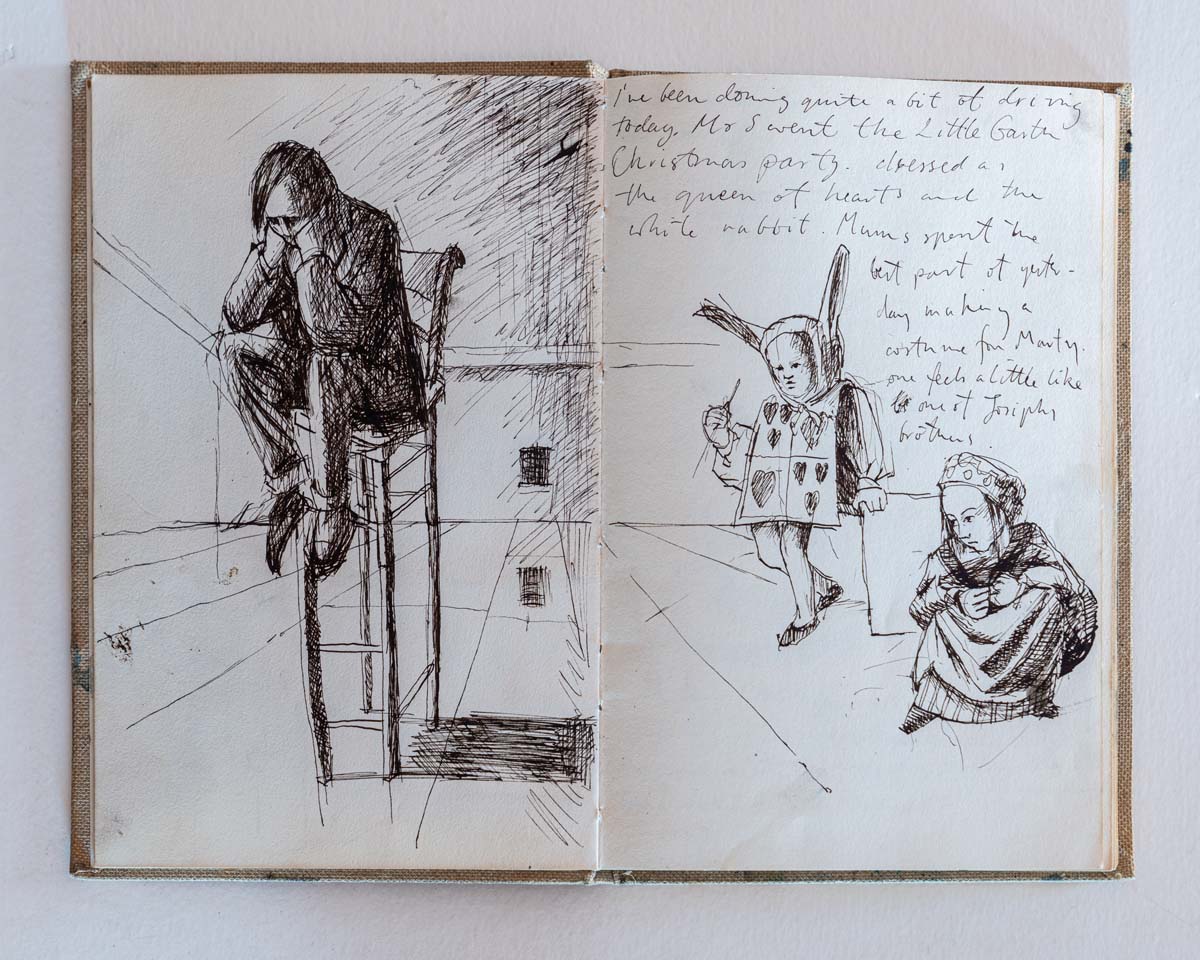 I've been doing quite a bit of driving
today. M & S went the Little Garth
Christmas party. dressed as
the queen of hearts and the
white rabbit. Mums spent the
best part of yester-
day making a
costume for Marty.
one feels a little like
one of Josiphs
brothers.